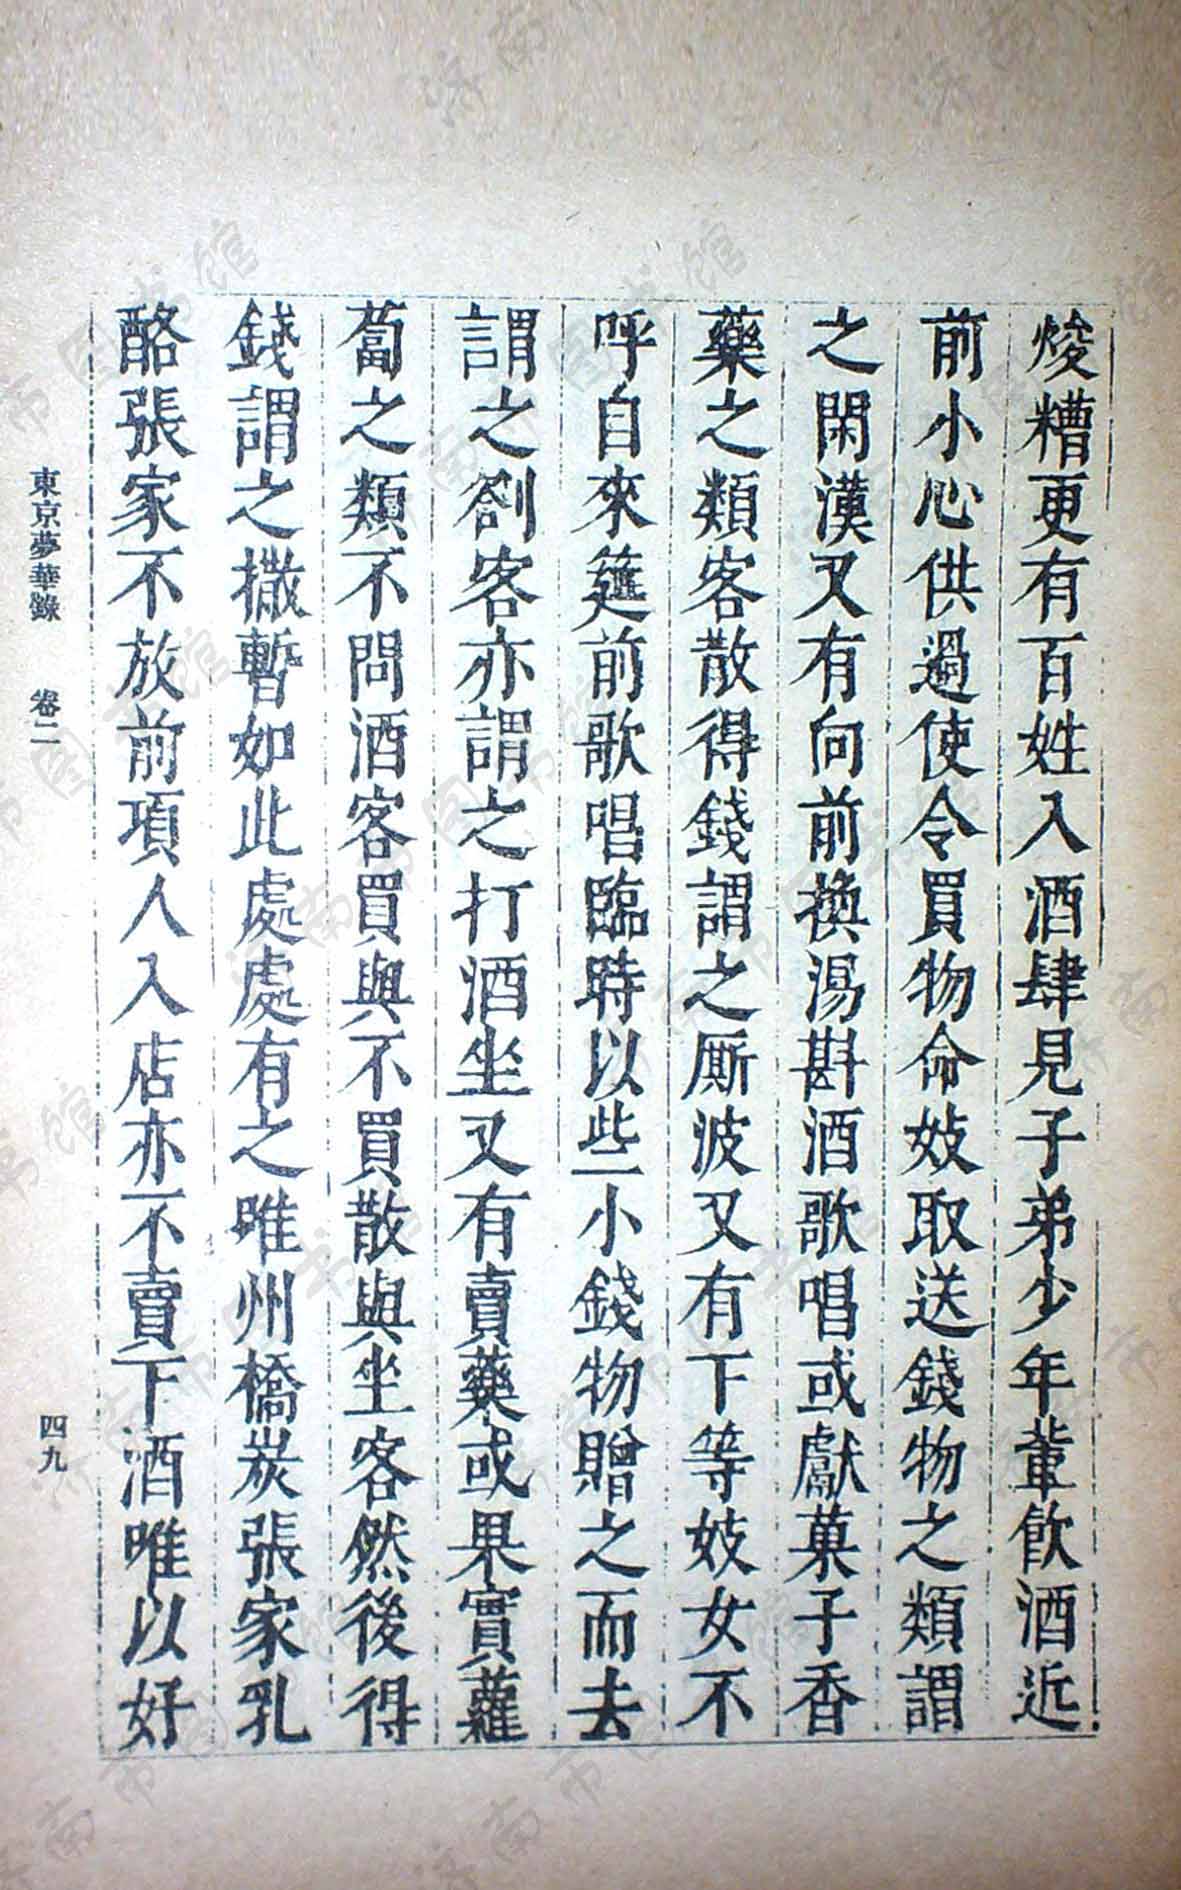 焌糟更有百姓入酒肆見子弟少年軰飲酒近
前小心供過使令買物命妓取送錢物之類謂
之閑漢又有向前換湯斟酒歌唱或獻菓子香
藥之類客散得錢謂之厮波又有下等妓女不
呼自來筵前歌唱臨時以些小錢物贈之而去
謂之劄客亦謂之打酒坐又有賣藥或果實蘿
蔔之類不問酒客買與不買散與坐客然後得
錢謂之撒暫如此處處有之唯州橋炭張家乳
酪張家不放前項人入店亦不賣下酒唯以好
東京夢華錄 卷二 四九
济南市图书馆